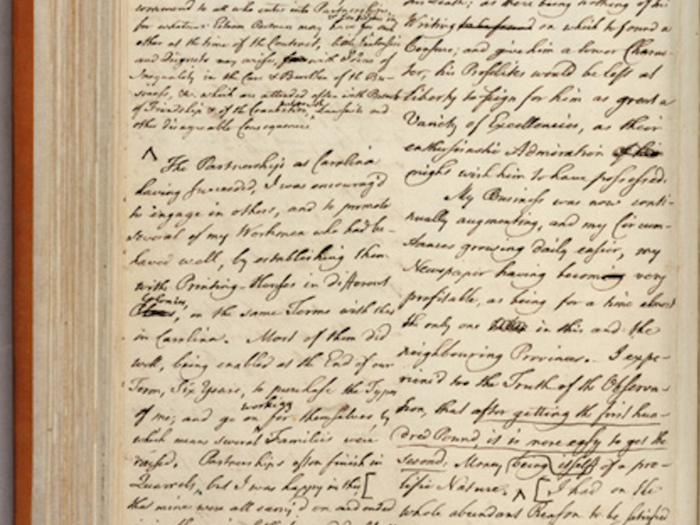 commend to all who enter into Partnerships,
for whatever Esteem Partners may have for and
other at the time of the Contract, little Jealousies
and Disgusts may arise, with Ideas of
Inequality in the Care & Burthen of the Bu-
siness, &c. which are attended often with Breach
of Friendship & of the Connection, perhaps with Lawsuits and
other disagreable Consequences
^
The Partnership at Carolina
having succeeded, I was encourag'd
to engage in others, and to promote
several of my Workmen who had be-
haved well, by establishing them
with Printing-Houses in different
Colonies,
on the same Terms with that
in Carolina. Most of them did
well, being enabled at the End of our
Term, Six Years, to purchase the Types
working
of me; and go on for themselves, by
which means several Families were
raised. Partnerships often finish in
Quarrels, but I was happy in this, [
that mine were all carry'd on and ended
his Death; as there being nothing of his
Writing on which to found a
Censure; and give him a lower Charac-
ter, his Proselites would be left at
Liberty to feign for him as great a
Variety of Excellencies, as their
enthusiastic Admiration
might wish him to have possessed.
My Business was now conti-
nually augmenting, and my Circum-
stances growing daily easier, my
Newspaper having become very
profitable, as being for a time almost
the only one in this and the
neighbouring Provinces. I expe-
rienc'd too the Truth of the Observa-
tion, that after getting the first hun-
dred Pound, it is more easy to get the
second: Money itself being of a pro-
lific Nature. ^ [I had on the
whole abundant Reason to be satisfied